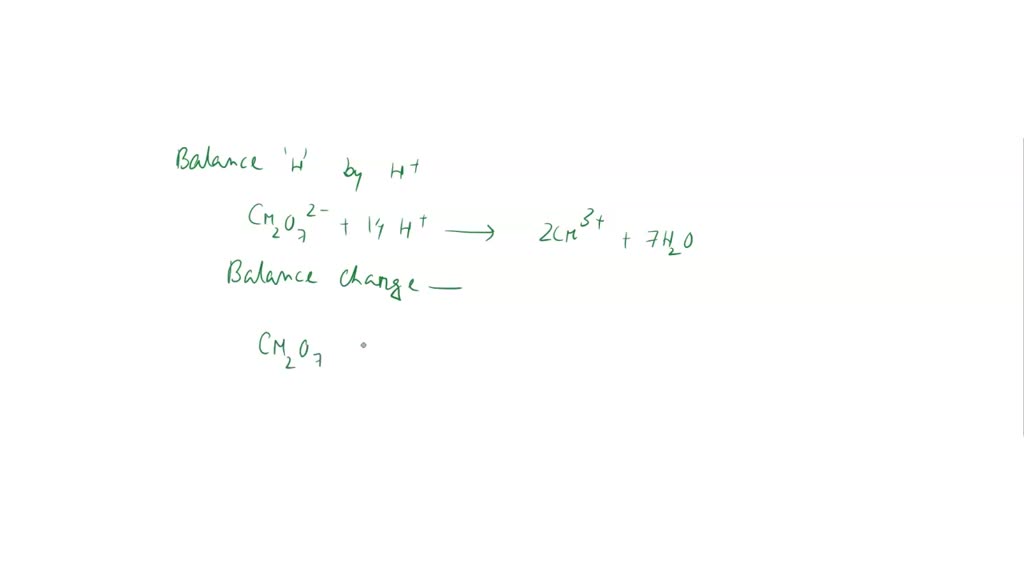 Balance 'H' by H⁺
Cr₂O₇²⁻ + 14 H⁺ ⟶ 2Cr³⁺ + 7H₂O
Balance charge —
Cr₂O₇